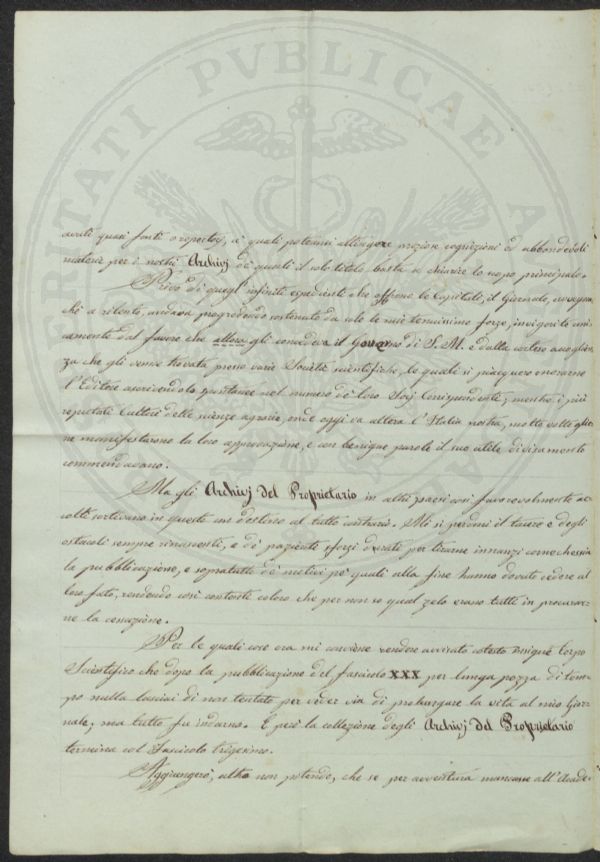 PROSPERITATI PVBLICAE
avuti quasi fonti o repertorj, a' quali potermi attingere preziose cognizioni ed abbondevoli
materie per i nostri Archivj de' quali il solo titolo basta a chiarire lo scopo principale.
Privo di quegl' infiniti espedienti che offrono le Capitali, il Giornale, avvegna-
chè a rilento, andava progredendo sostenuto da sole le mie tenuissime forze, invigorito uni-
camente dal favore che allora gli concedeva il Governo di S. M. e dalla cortese accoglien-
za che gli venne trovata presso varie Società scientifiche, le quali si piacquero onorarne
l'Editore ascrivendolo spontanee nel numero de' loro Socj Corrispondenti; mentre i più
reputati Cultori delle scienze agrarie, ond' oggi va altera l'Italia nostra, molte volte glie-
ne manifestarono la loro approvazione, e con benigne parole il suo utile divisamento
commendavano.
Ma gli Archivj del Proprietario in altri paesi così favorevolmente ac-
colti sortivano in questo un destino al tutto contrario. Mi si perdoni il tacere e degli
ostacoli sempre rinascenti, e de' pazienti sforzi durati per tirarne innanzi comechessia
la pubblicazione, e sopratutto de' motivi pe' quali alla fine hanno dovuto cedere al
loro fato, rendendo così contenti coloro che per non so qual zelo erano tutti in procurar-
ne la cessazione.
Per le quali cose ora mi conviene rendere avvisato cotesto insigne Corpo
Scientifico che dopo la pubblicazione del fascicolo XXX per lunga pezza di tem-
po nulla lasciai di non tentato per veder via di prolungare la vita al mio Gior-
nale; ma tutto fu indarno. E però la collezione degli Archivj del Proprietario
termina col Fascicolo trigesimo.
Aggiungerò, altro non potendo, che se per avventura mancasse all'Acade-